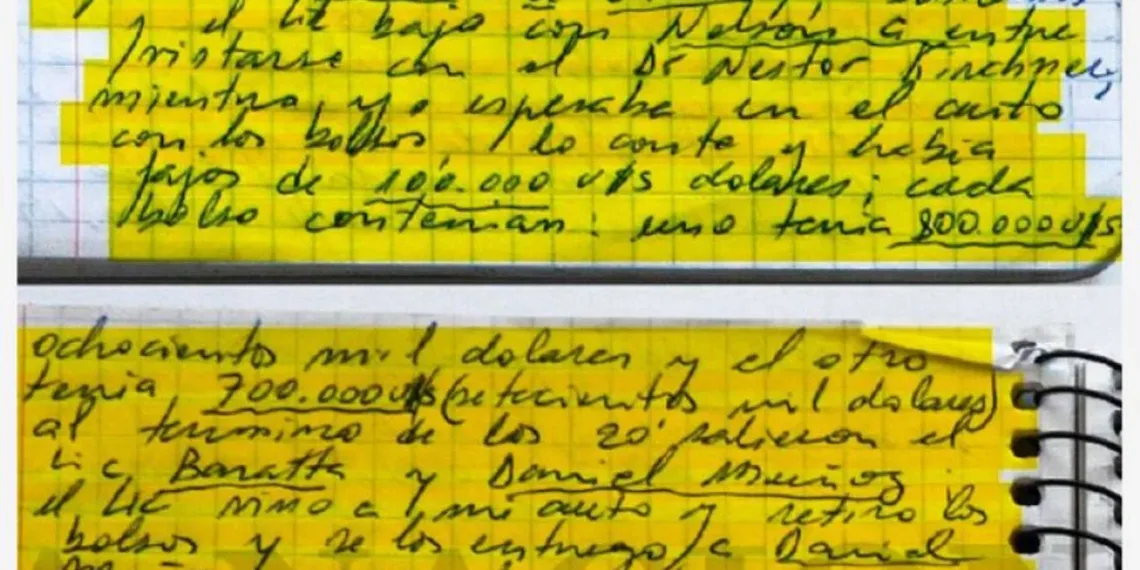 y el Lic bajo con Nelson a entre
/vistarse con el Dr Nestor Kirchner,
mientras, yo esperaba en el auto
con los bolsos / lo conte y habia
fajos de 100.000 u/s dolares; cada
bolso contenian: uno tenia 800.000 u/s
ochocientos mil dolares y el otro
tenia 700.000 u/s (setecientos mil dolares)
al termino de los 20' salieron el
Lic Baratta y Daniel Muñoz.
el Lic vino a mi auto y retiro los
bolsos y se los entrego a Daniel